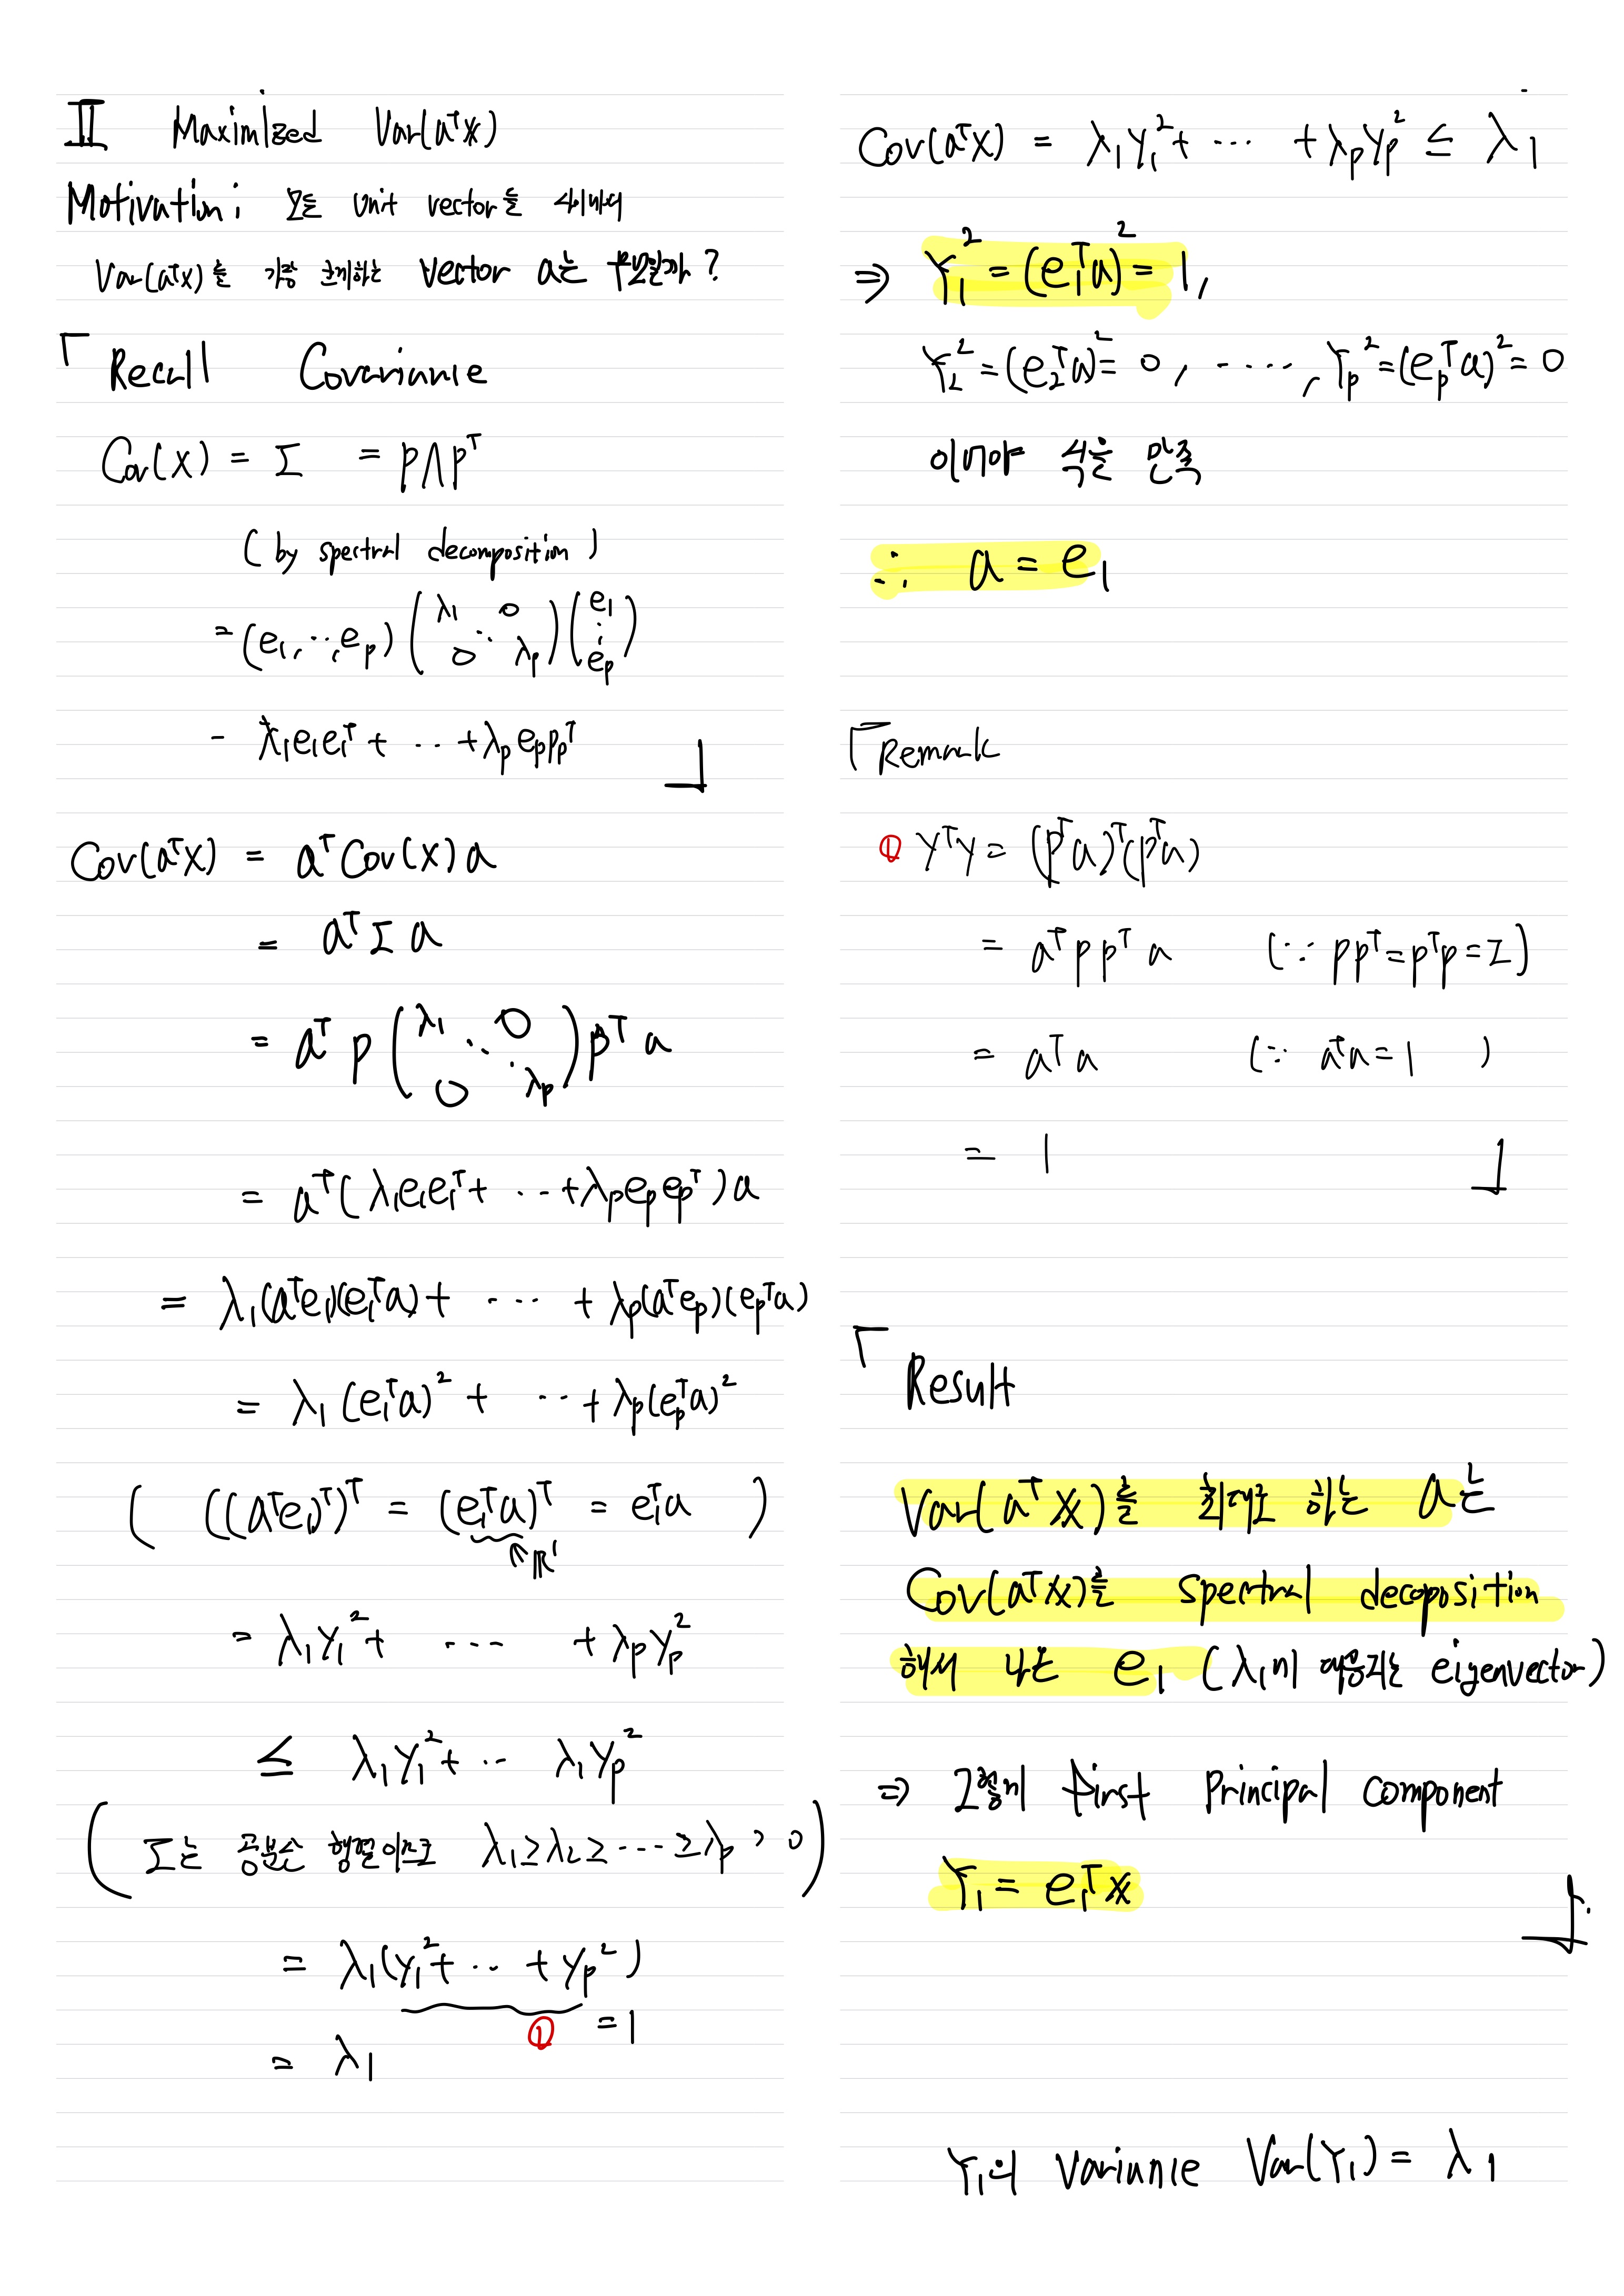 Ⅱ Maximized Var(aᵀx)
Motivation: 모든 unit vector들 사이에서
Var(aᵀx)를 가장 크게하는 vector a는 무엇일까?
「Recall Covariance
Cov(X) = Σ = PΛPᵀ
(by spectral decomposition)
= (e₁, ⋯, eₚ) (λ₁ 0 ⋱ 0 λₚ) (e₁ ⋮ eₚ)
- λ₁e₁e₁ᵀ + ⋯ + λₚeₚpₚᵀ 」
Cov(aᵀX) = aᵀCov(X)a
= aᵀΣa
= aᵀP (λ₁ 0 ⋱ 0 λₚ) Pᵀa
= aᵀ(λ₁e₁e₁ᵀ + ⋯ + λₚeₚeₚᵀ)a
= λ₁(aᵀe₁)(e₁ᵀa) + ⋯ + λₚ(aᵀeₚ)(eₚᵀa)
= λ₁(e₁ᵀa)² + ⋯ + λₚ(eₚᵀa)²
( ((aᵀe₁)ᵀ)ᵀ = (e₁ᵀa)ᵀ = e₁ᵀa )
ℝ¹
= λ₁y₁² + ⋯ + λₚyₚ²
≤ λ₁y₁² + ⋯ λ₁yₚ²
( Σ는 공분산 행렬이므로 λ₁≥λ₂≥⋯≥λₚ>0 )
= λ₁(y₁² + ⋯ + yₚ²)
① = 1
= λ₁
Cov(aᵀX) = λ₁y₁² + ⋯ + λₚyₚ² ≤ λ₁
⇒ Y₁² = (e₁ᵀa)² = 1,
Y₂² = (e₂ᵀa)² = 0, ⋯, Yₚ² = (eₚᵀa)² = 0
이어야 식을 만족
∴ a = e₁
「Remark
① YᵀY = (Pᵀa)ᵀ(Pᵀa)
= aᵀPPᵀa (∵ PPᵀ = PᵀP = I)
= aᵀa (∵ aᵀa = 1)
= 1 」
「Result
Var(aᵀX)를 최대로 하는 a는
Cov(aᵀX)를 spectral decoposition
해서 나온 e₁ (λ₁에 대응되는 eigenvector)
⇒ 그중에 first principal component
Y₁ = e₁ᵀX 」
Y₁의 Variance Var(Y₁) = λ₁